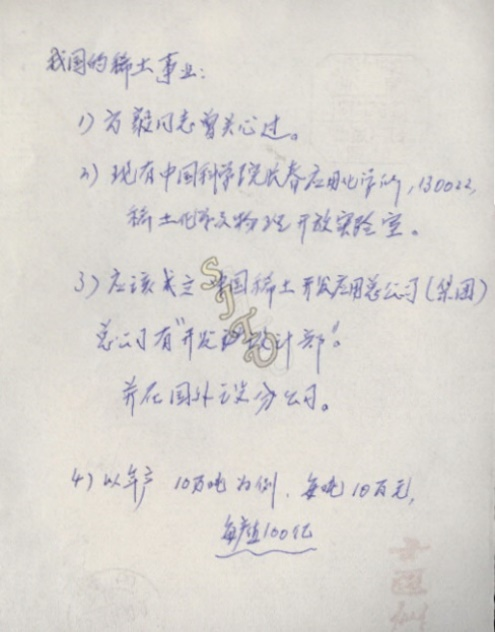 我国的稀土事业：
1）方毅同志曾关心过。
2）现有中国科学院长春应用化学所，130022，
稀土化学及物理开放实验室。
3）应该成立中国稀土开发应用总公司（集团）
总公司有“开发设计部”。
并在国外设分公司。
4）以年产10万吨为例，每吨10万元，
年产值100亿
SJTU